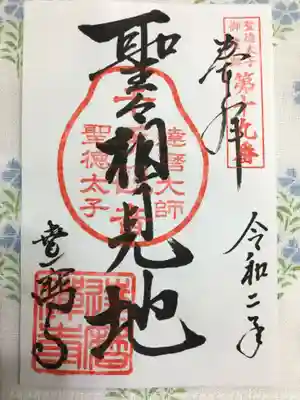 聖徳太子
御遺跡
第十九番
奉拝
令和二年
聖々相見地
達磨大師
聖徳太子
達磨寺